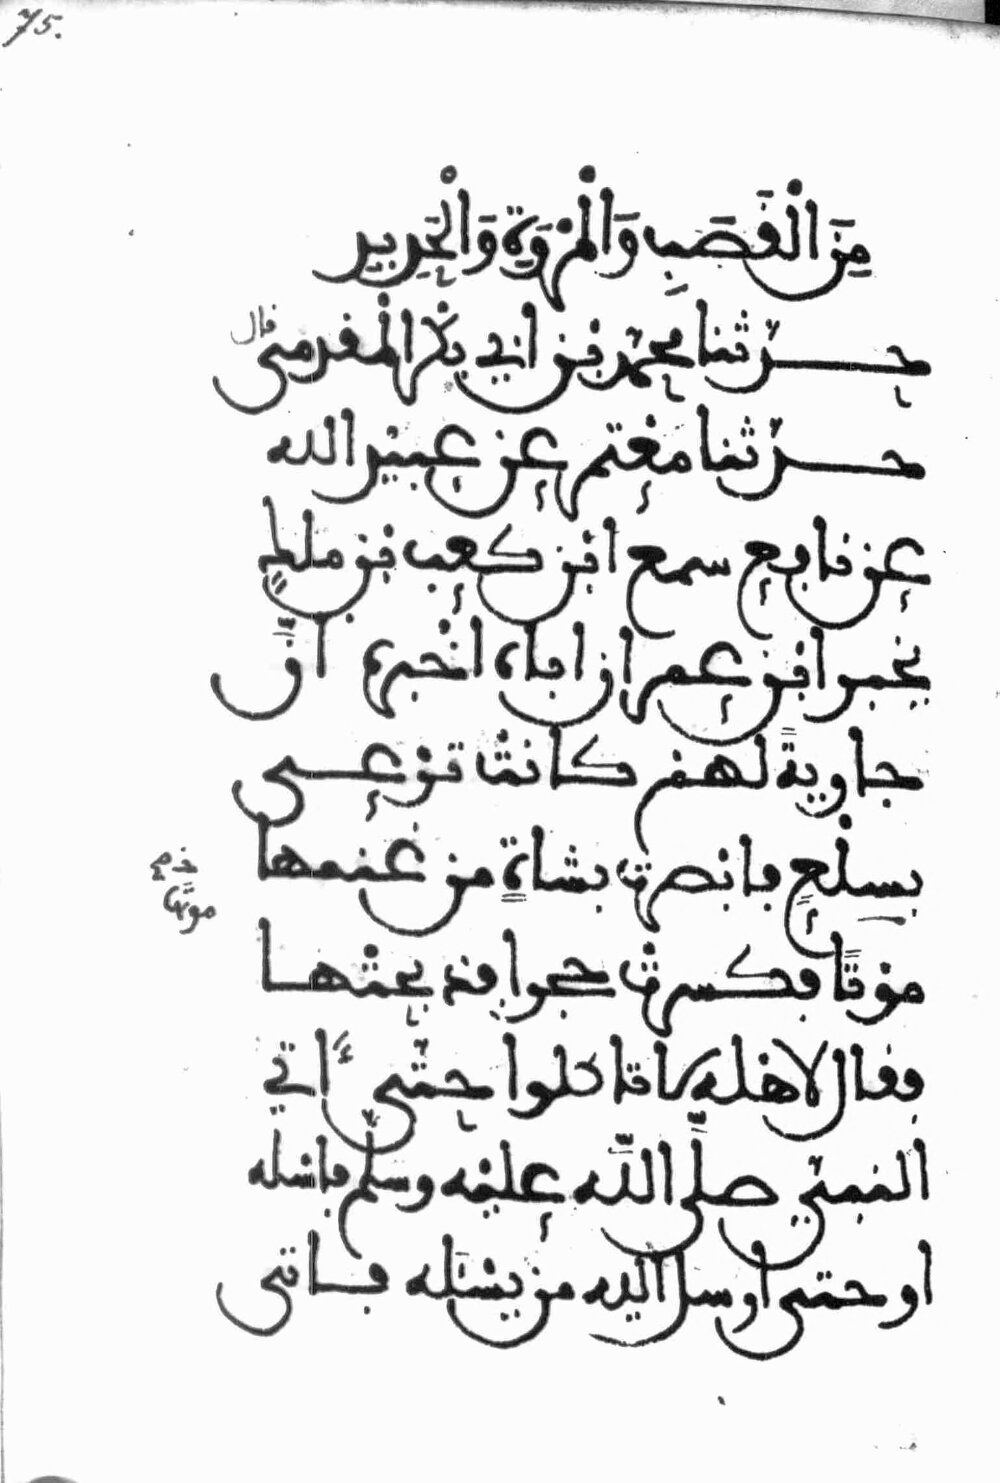 75.
مِنَ الْقَصَبِ وَالْمَرْوَةِ وَالْحَدِيدِ
حدثنا محمد بن ابي بكر المقدمي قال
حدثنا معتمر عن عبيد الله
عن نافع سمع ابن كعب بن ملك
يخبر ابن عمر ان اباه اخبره انّ
جارية لهم كانت ترعى
بسلع فابصرت بشاة من غنمها
موتا فكسرت حجرا فذبحتها
فقال لاهله لا تاكلوا حتى اتي
النبي صلى الله عليه وسلم فاسله
او حتى ارسل اليه من يسئله فاتى
موتها